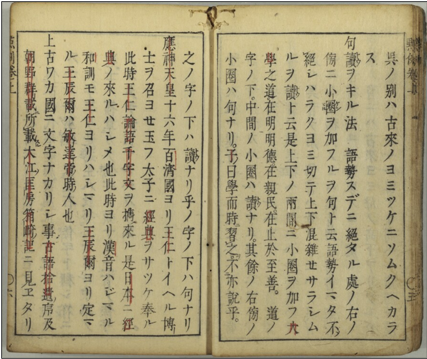 ノ別ハ古來ノヨミツケニソムクヘカラ
ス
句讀ヲキル法 語勢スデニ絶タル處ノ右ノ
傍ニ小圏ヲ加フルヲ句ト云語勢イマタ不
絶シハラクヨミ切テ上下混雜セサラシム
ルヲ讀ト云是上下ノ兩間ニ小圏ヲ加フ大
學之道在明明德在親民在止於至善。道ノ
字ノ下。中間ノ小圏ハ讀ナリ。其餘ノ右傍ノ
小圏ハ句ナリ。子曰學而時習之不亦説乎。
之ノ字ノ下ハ讀ナリ乎ノ字ノ下ハ句ナリ
應神天皇十六年百濟國ヨリ王仁トイヘル博
士ヲ召ヨセ玉フ太子ニ經典ヲサツケ奉ル
此時王仁論語千字文ヲ携來ル是日本ニ經
典ノ來ルハシメ也此時ヨリ漢音ハシマル
和訓モ王仁ヨリハシマリ王辰爾ヨリ定マ
ル王辰爾ハ敏達帝時人也
上古ワカ國ニ文字ナカリシ事古語拾遺序及
朝野群載所載大江匡房筥崎記ニ見エタリ